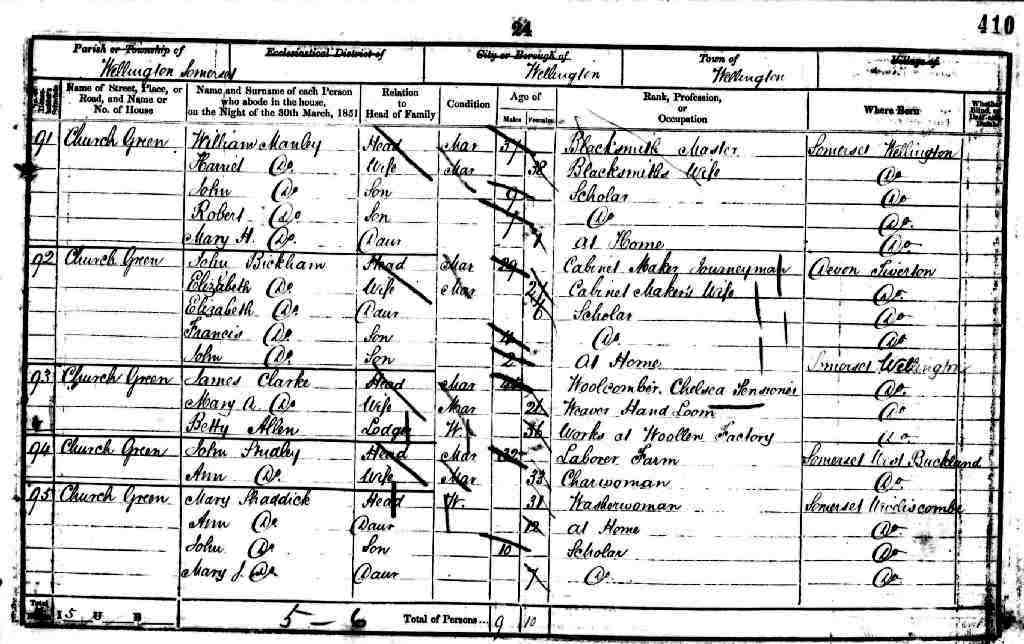 24
410
Parish or Township of
Ecclesiastical District of
City or Borough of
Town of
Village of
Wellington Somerset
Wellington
Wellington
Name of Street, Place, or Road, and Name or No. of House
Name and Surname of each Person who abode in the house, on the Night of the 30th March, 1851
Relation to Head of Family
Condition
Age of
Males Females
Rank, Profession, or Occupation
Where Born
91 Church Green William Manley Head Mar 37 Blacksmith Master Somerset Wellington
Harriet Do. Wife Mar 38 Blacksmiths Wife Do
John Do. Son 9 Scholar Do
Robert Do. Son 7 Do Do.
Mary H. Do. Daur 1 At Home Do
92 Church Green John Bickham Head Mar 29 Cabinet Maker Journeyman Devon Tiverton
Elizabeth Do Wife Mar Cabinet Maker's Wife Do.
Elizabeth Do Daur 6 Scholar Do
Francis Do. Son 4 Do. Do
John Do. Son 2 At Home Somerset Wellington
93 Church Green James Clarke Head Mar Woolcomber. Chelsea Pensioner Do
Mary A. Do. Wife Mar 21 Weaver Hand Loom Do
Betty Allen Lodger W. 36 Works at Woollen Factory Do
94 Church Green John Head Mar 32 Laborer Farm Somerset West Buckland
Ann Do. Wife Mar 33 Charwoman Do
95 Church Green Mary Shaddick Head W. 31 Washerwoman Somerset Wiveliscombe
Ann Do Daur 12 At Home Do
John Do Son 10 Scholar Do
Mary J. Do Daur 7 Do Do
5 U B
5 – 6
Total of Persons... 9 10